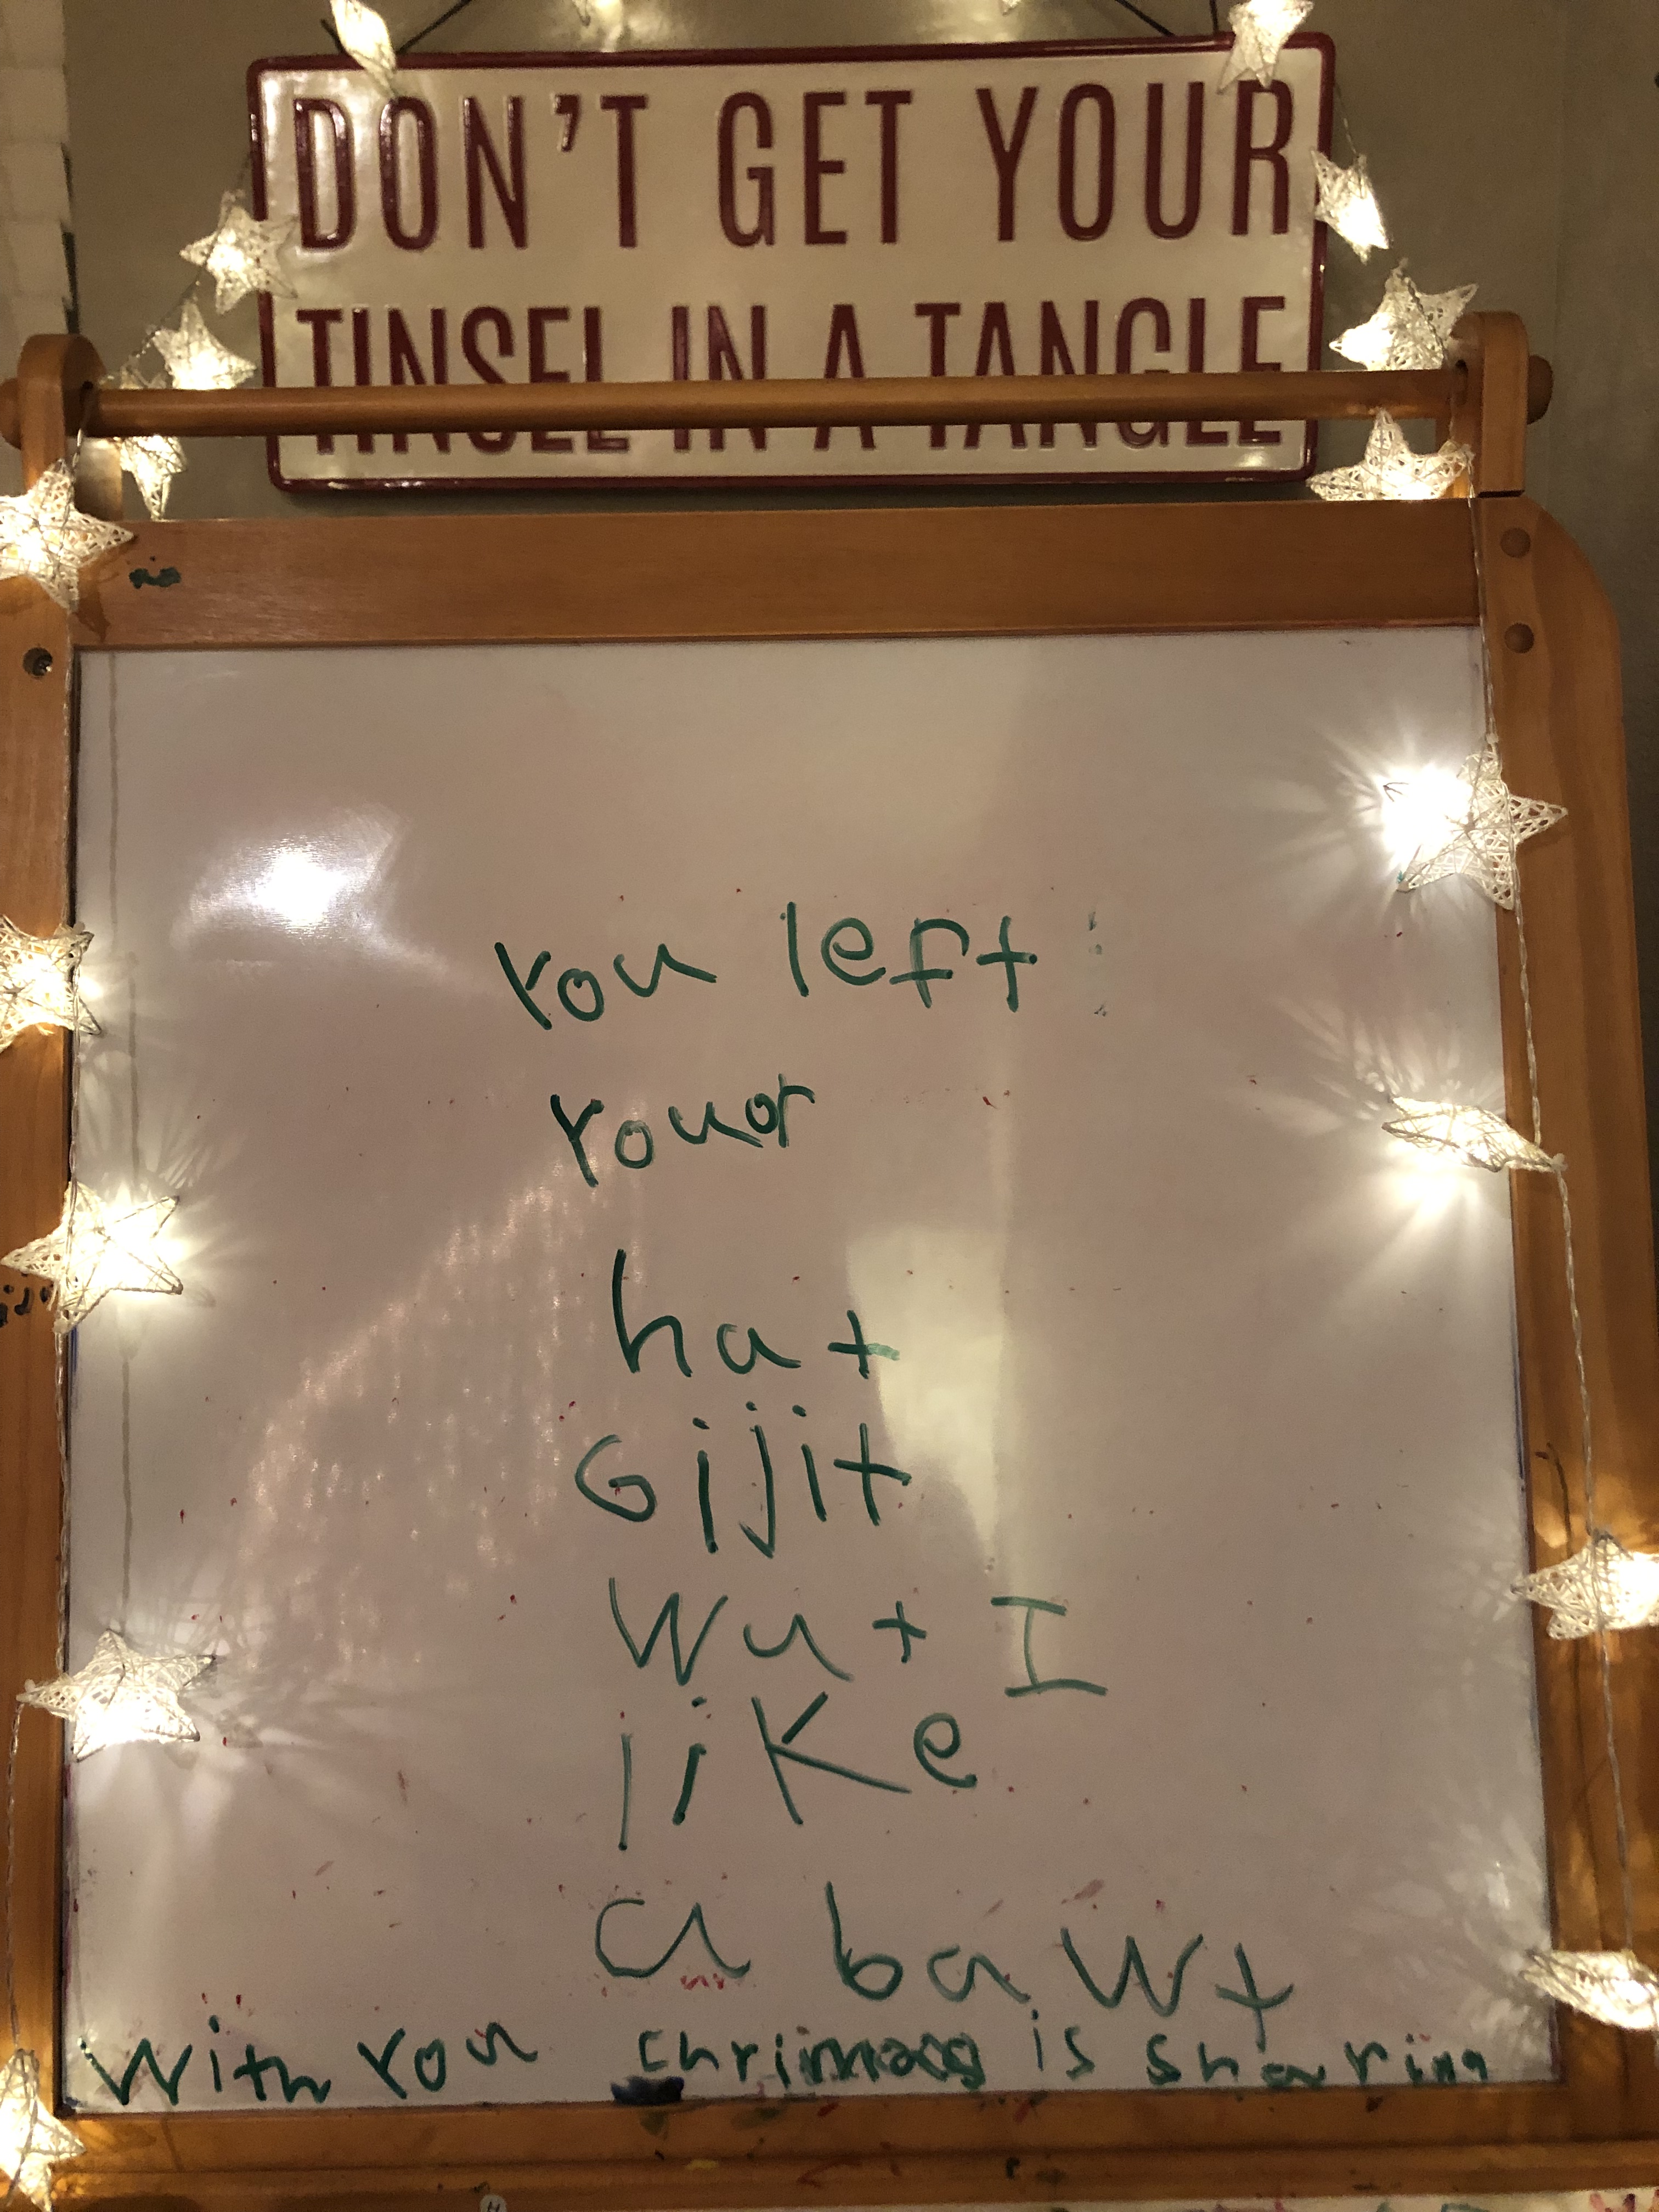 DON'T GET YOUR
TINSEL IN A TANGLE
You left
Youor
hat
Gijit
Wut I
like
a bawt
With You chrimas is sharing